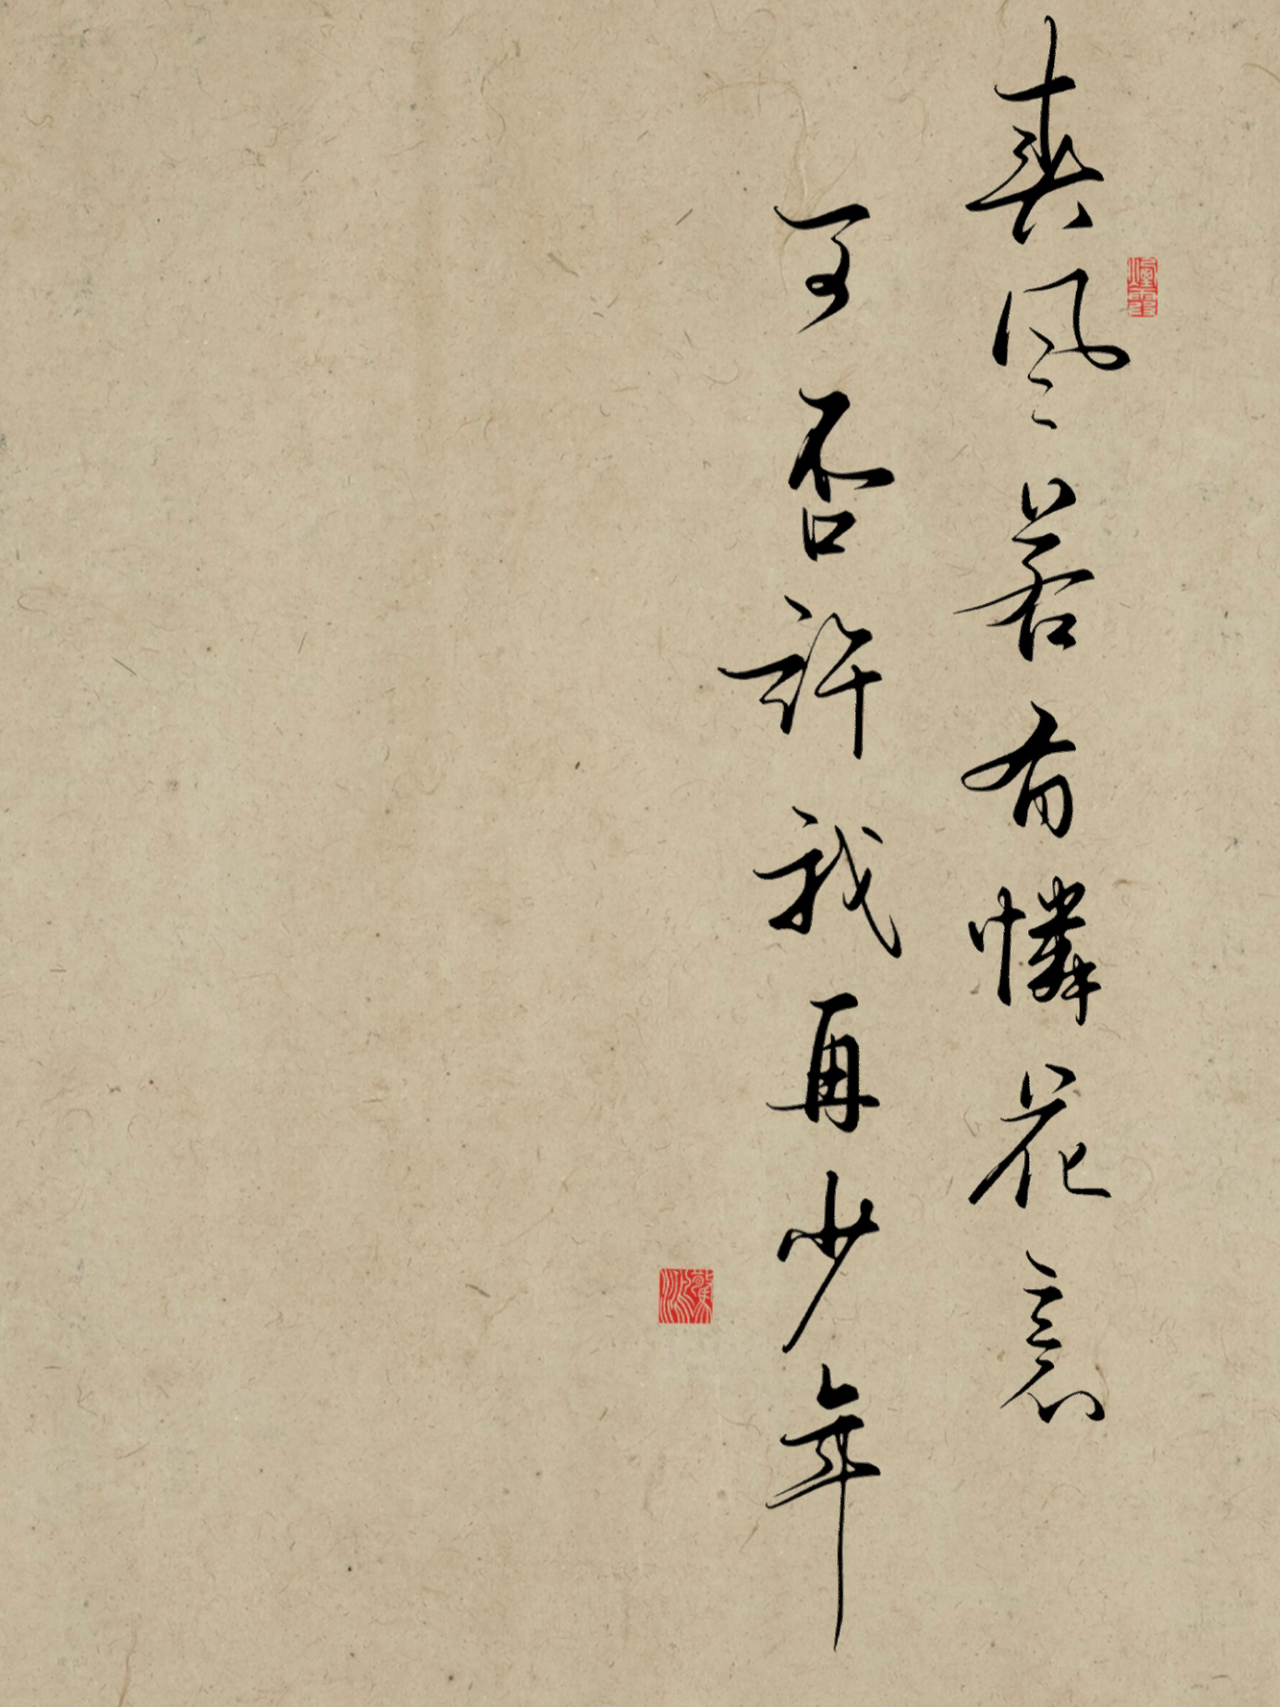 春风若有憐花意
可否許我再少年